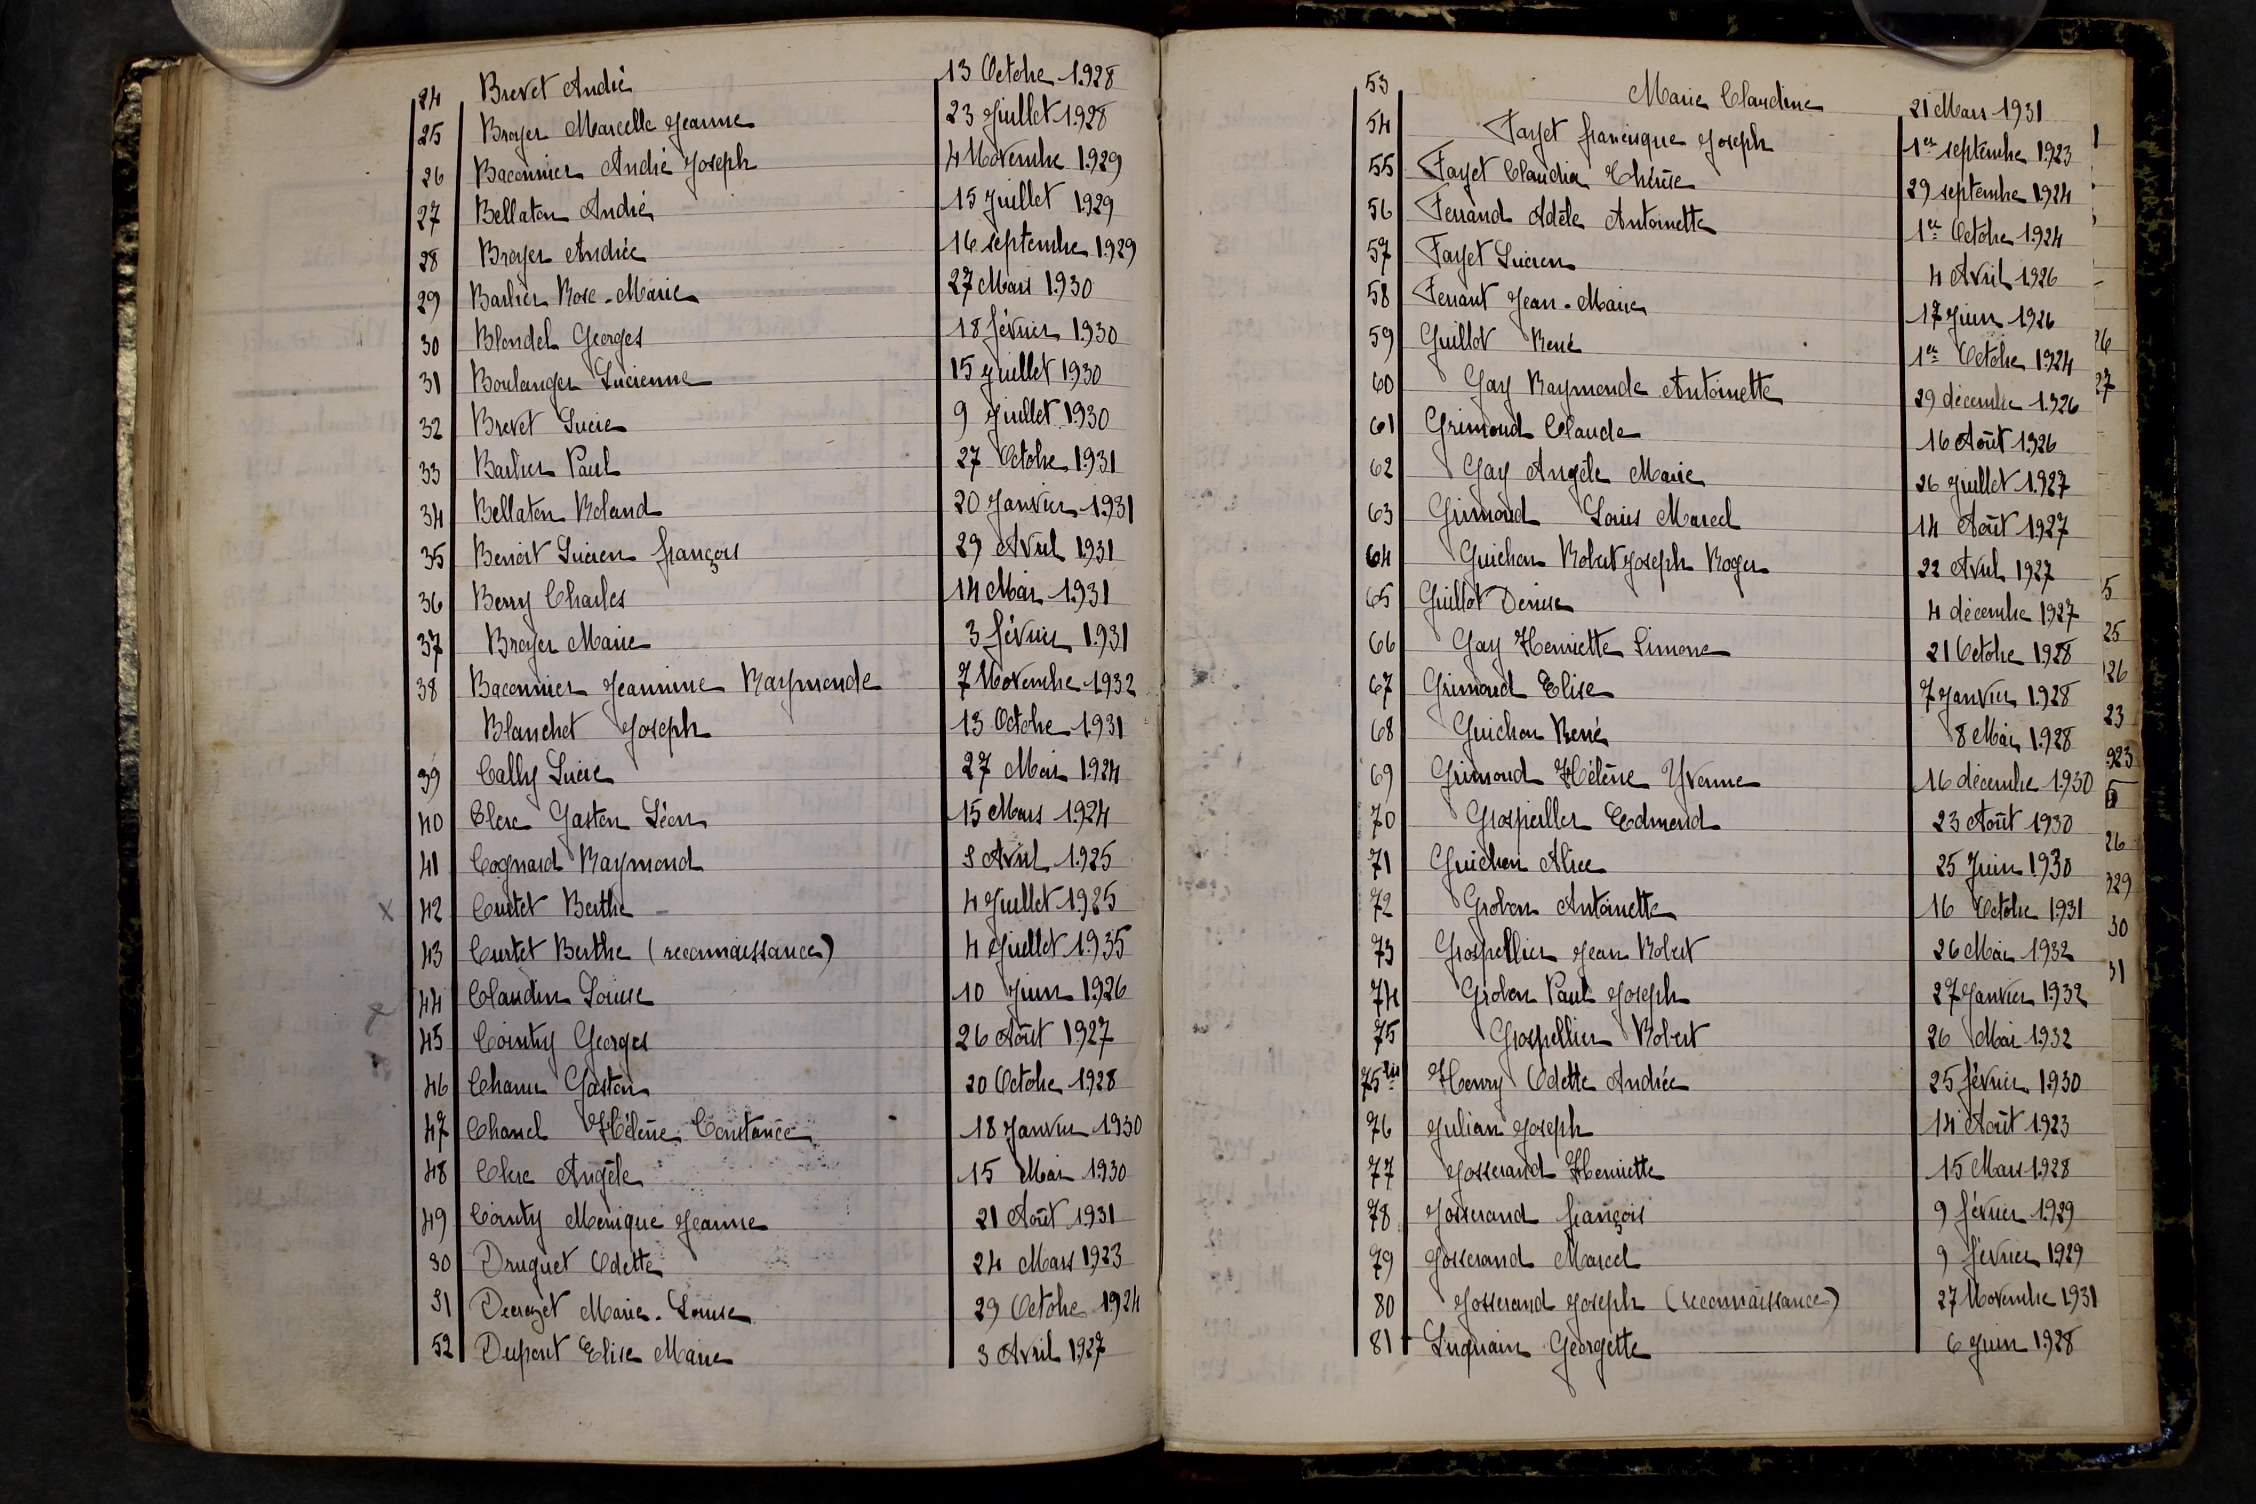 24 Brevet André 13 Octobre 1928
25 Broyer Marcelle Jeanne 23 Juillet 1928
26 Baconnier André Joseph 4 Novembre 1929
27 Bellaton André 15 Juillet 1929
28 Broyer Andrée 16 septembre 1929
29 Barbier Rose-Marie 27 Mars 1930
30 Blondel Georges 18 février 1930
31 Boulanger Lucienne 15 Juillet 1930
32 Brevet Lucie 9 Juillet 1930
33 Barbier Paul 27 Octobre 1931
34 Bellaton Roland 20 Janvier 1931
35 Benoit Lucien françois 29 Avril 1931
36 Berry Charles 14 Mai 1931
37 Broyer Marie 3 février 1931
38 Baconnier Jeannine Raymonde 7 Novembre 1932
Blanchet Joseph 13 Octobre 1931
39 Cally Lucie 27 Mai 1924
40 Clerc Gaston Léon 15 Mars 1924
41 Cognard Raymond 8 Avril 1925
x 42 Curtet Berthe 4 Juillet 1925
43 Curtet Berthe (reconnaissance) 4 Juillet 1935
44 Claudin Louise 10 Juin 1926
45 Cointy Georges 26 Août 1927
46 Chanu Gaston 20 Octobre 1928
47 Chanel Hélène Constance 18 Janvier 1930
48 Clerc Angèle 15 Mai 1930
49 Cointy Monique Jeanne 21 Août 1931
50 Druguet Odette 24 Mars 1923
51 Decrozet Marie-Louise 29 Octobre 1924
52 Dupont Elise Marie 3 Avril 1927
53 Marie Claudine 21 Mars 1931
54 Fayet francisque Joseph 1er septembre 1923
55 Fayet Claudia Thérèse 29 septembre 1924
56 Ferrand Adèle Antoinette 1er Octobre 1924
57 Fayet Lucien 4 Avril 1926
58 Ferrant Jean-Marie 17 Juin 1926
59 Guillot René 1er Octobre 1924
60 Gay Raymonde Antoinette 29 décembre 1926
61 Grimoud Claude 16 Août 1926
62 Gay Angèle Marie 26 Juillet 1927
63 Grimoud Louis Marcel 14 Août 1927
64 Guichon Robert Joseph Roger 22 Avril 1927
65 Guillot Denise 4 décembre 1927
66 Gay Henriette Simone 21 Octobre 1928
67 Grimoud Elise 7 Janvier 1928
68 Guichon René 8 Mai 1928
69 Grimoud Hélène Yvonne 16 décembre 1930
70 Grospeiller Edmond 23 Août 1930
71 Guichon Alice 25 Juin 1930
72 Grobon Antoinette 16 Octobre 1931
73 Grospellier Jean Robert 26 Mai 1932
74 Grobon Paul Joseph 27 Janvier 1932
75 Grospellier Robert 26 Mai 1932
75bis Henry Odette Andrée 25 février 1930
76 Julian Joseph 14 Août 1923
77 Josserand Henriette 15 Mars 1928
78 Josserand françois 9 février 1929
79 Josserand Marcel 9 février 1929
80 Josserand Joseph (reconnaissance) 27 Novembre 1931
81 Luquain Georgette 6 Juin 1928